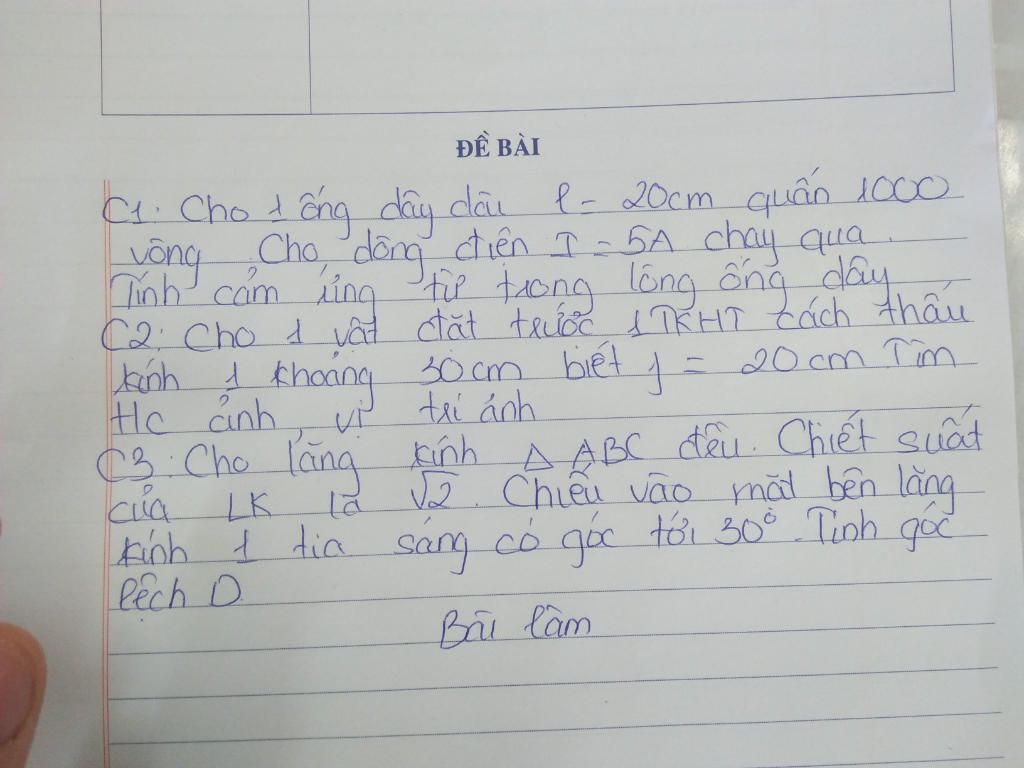 ĐỀ BÀI
C1. Cho 1 ống dây dâu l = 20cm quấn 1000
vòng Cho dòng điện I = 5A chay qua.
Tính cảm ứng từ trong lòng ống dây
C2: Cho 1 vật đặt trước 1TKHT cách thấu
kính 1 khoảng 30cm biết f = 20cm Tìm
Hc ảnh, vị trí ảnh
C3: Cho lăng kính Δ ABC đều. Chiết suất
của LK là √2. Chiếu vào mặt bên lăng
kính 1 tia sáng có góc tới 30°. Tính góc
lệch D
Bài làm